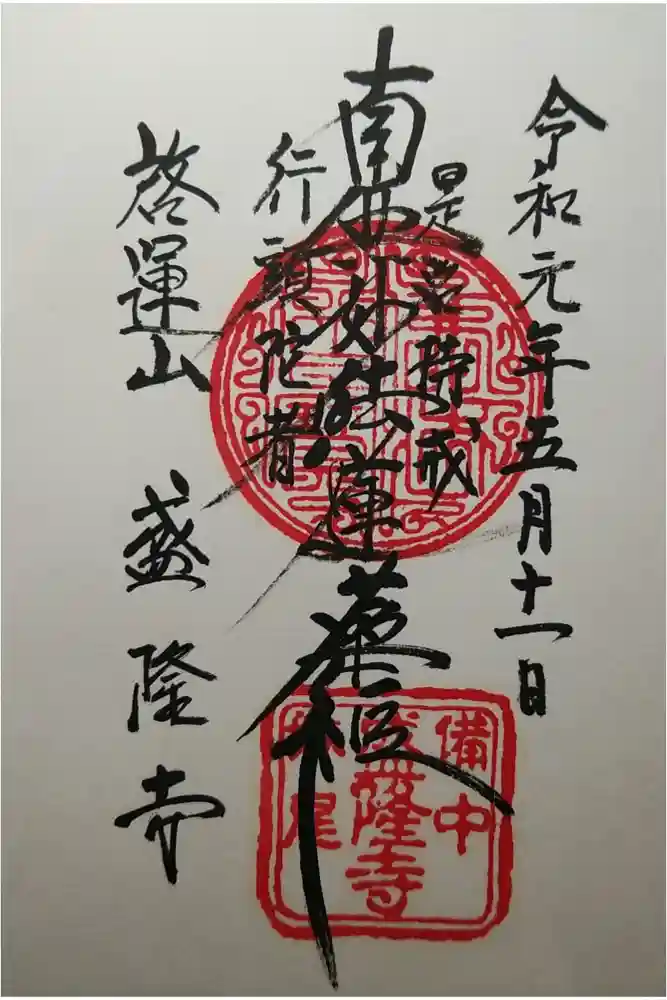 令和元年五月十一日
是名持戒
南無妙法蓮華経
行頭陀者
啓運山 盛隆寺
備中
盛隆寺
妹尾